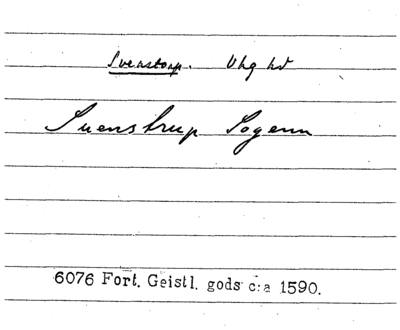 Svenstorp. Vhg hd
Suenstrup Sogenn
6076 Fort. Geistl. gods c:a 1590.